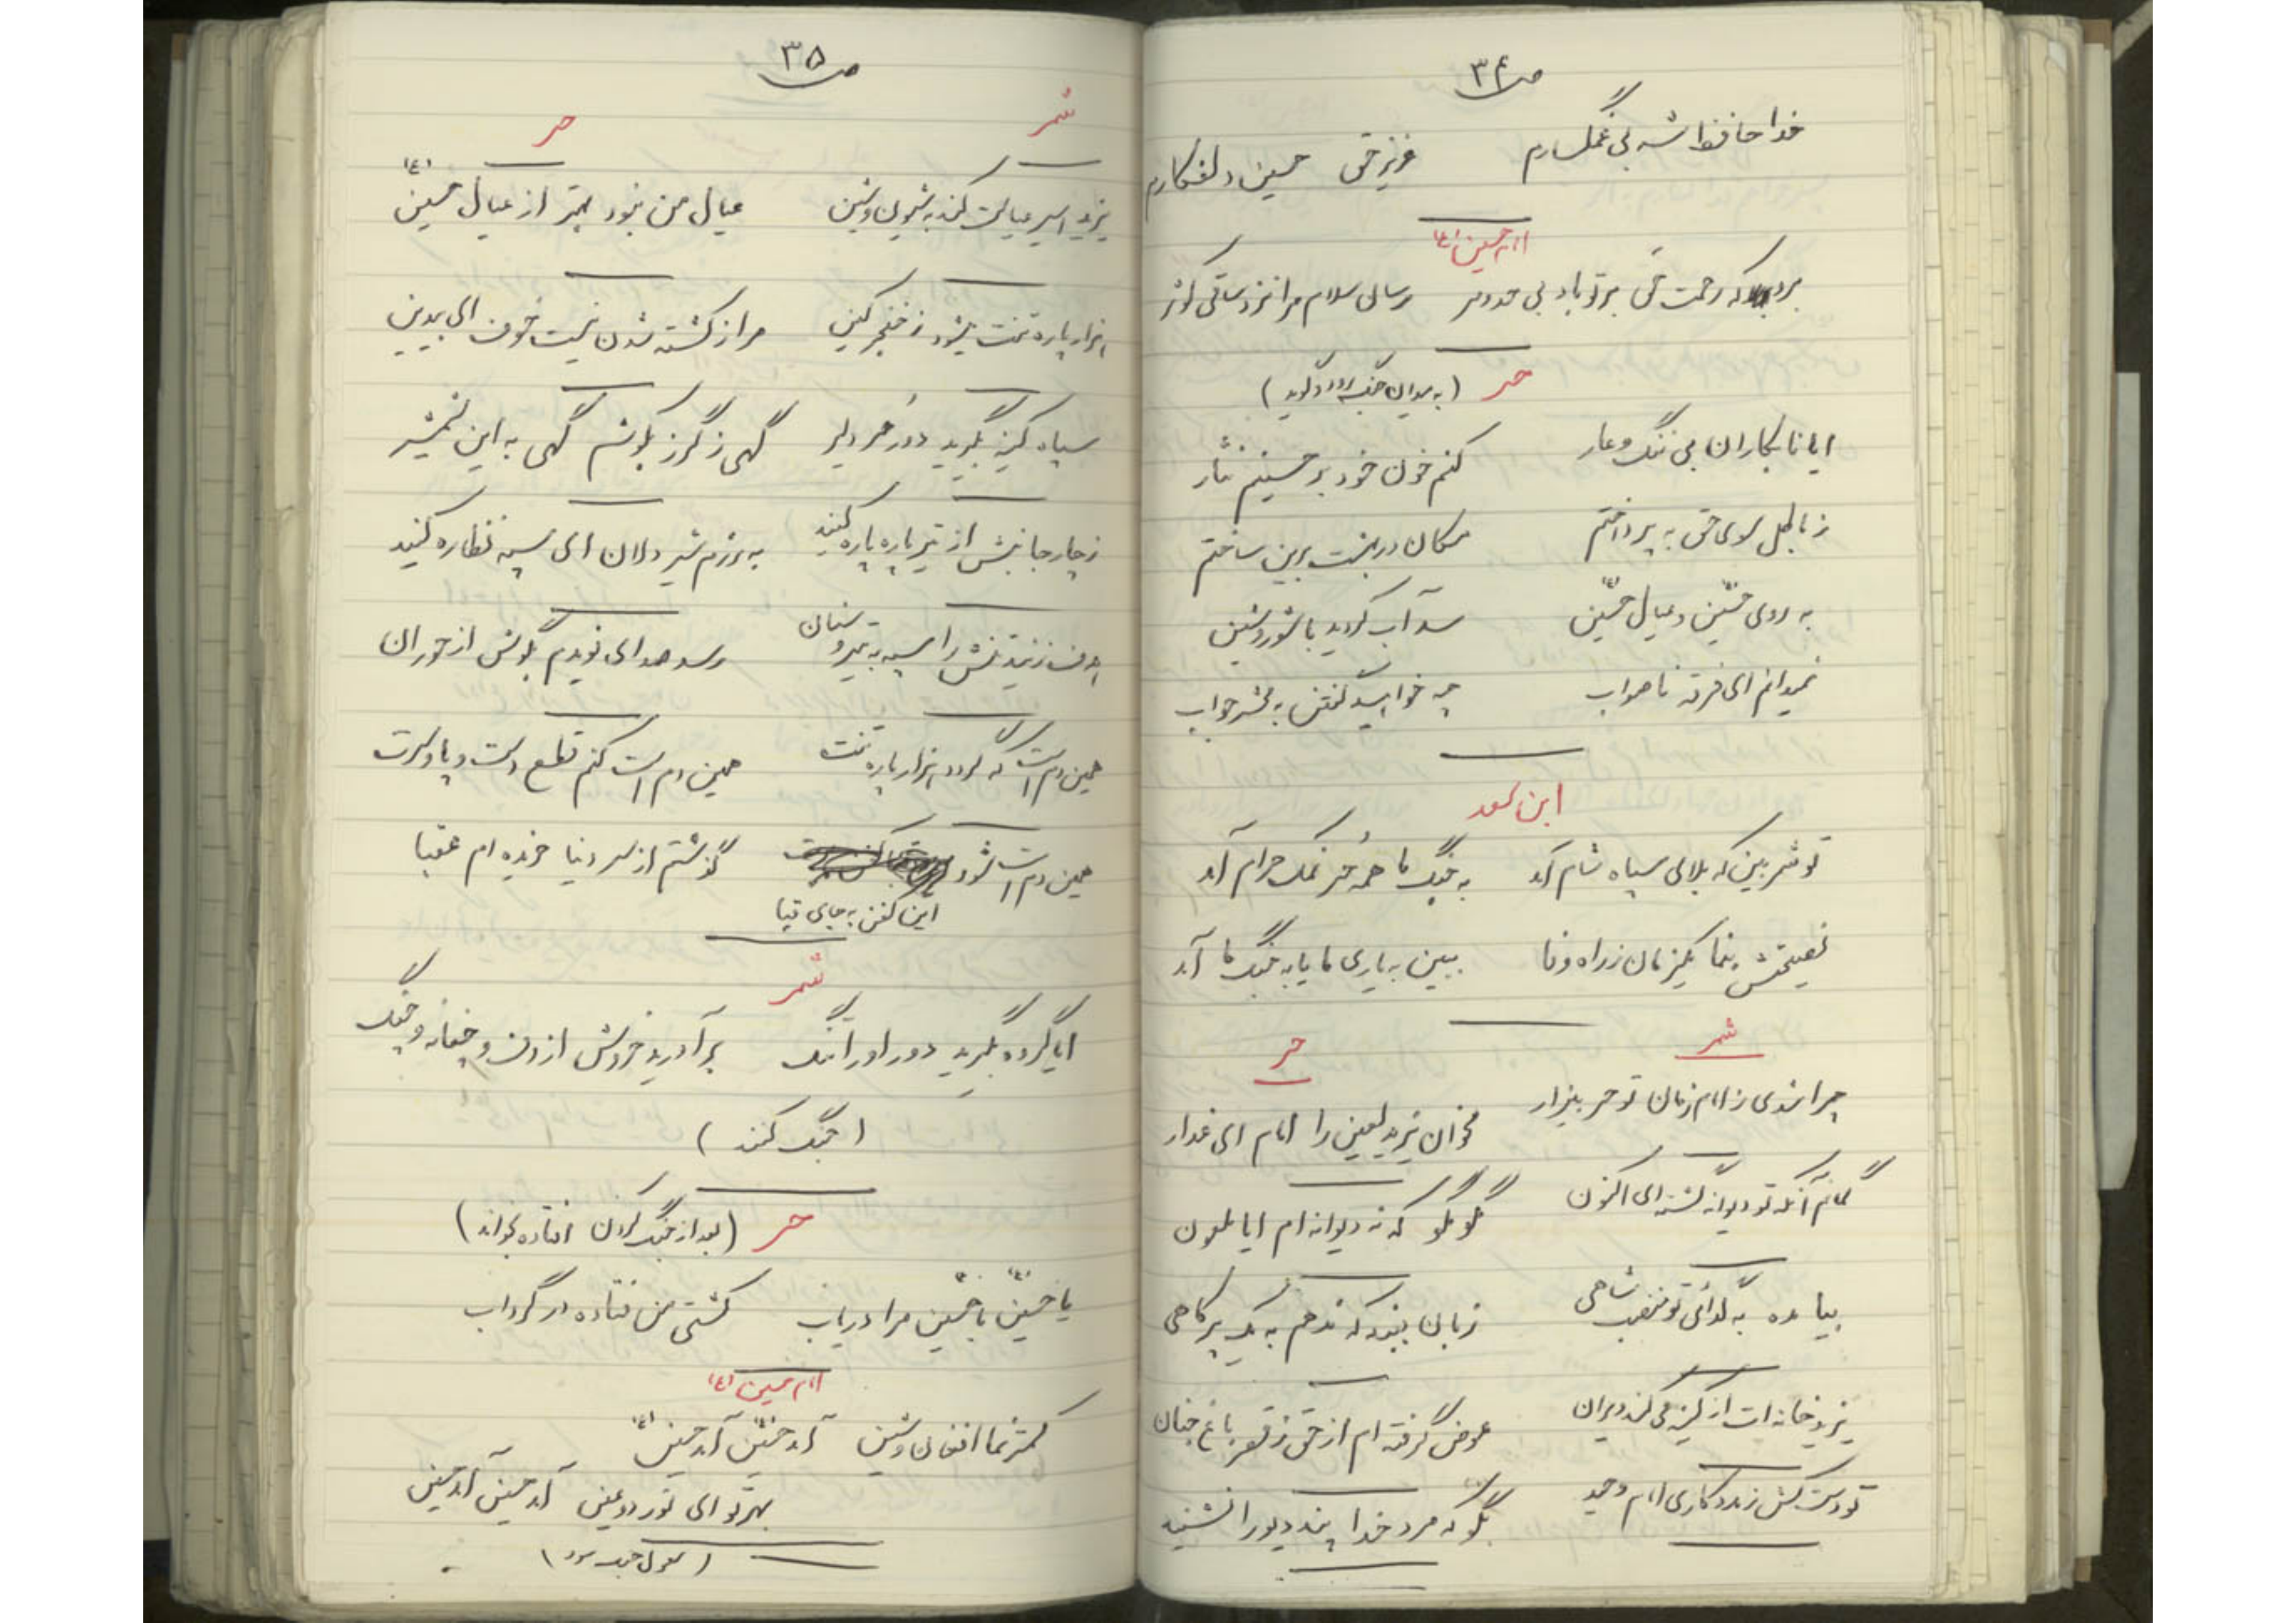 ص ۳۴
خدا حافظ شه بی غمگسارم    عزیز حق حسین دلفکارم
امام حسین (ع)
برو که رحمت حق بر تو باد بی حد و مر    رسان سلام مرا نزد ساقی کوثر
حر (به میدان جنگ رود گوید)
ایا نابکاران بی ننگ و عار    کنم خون خود بر حسینم نثار
ز باطل سوی حق به پرداختم    مکان در بهشت برین ساختم
به روی حسین و عیال حسین (ع)    سد آب کردید با شور و شین
نمیدانم ای فرقه ناصواب    چه خواهید گفتن به محشر جواب
ابن سعد
تو شمر بین که بلای سپاه شام آمد    به جنگ ما همه حُر نمک حرام آمد
نصیحتش بنما یکزمان ز راه وفا    ببین به یاری ما یا به جنگ ما آمد
شمر    حر
چرا شدی ز امام زمان تو حر بیزار    مخوان یزید لعین را امام ای غدار
گمانم آنکه تو دیوانه گشته ای اکنون    بگو بگو که نه دیوانه ام ایا ملعون
بیا مده به گدائی تو منصب شاهی    زبان ببند که ندهم به یک پر کاهی
یزید خانه ات از کینه می کند ویران    عوض گرفته ام از حق ز قصر باغ جنان
تو دست کش ز مددکاری امام وحید    بگو که مرد خدا پند دیو را نشنید
ص ۳۵
شمر    حر
یزید اسیر عیالت کند به شیون و شین    عیال من نبود بهتر از عیال حسین (ع)
هزار پاره تنت میشود ز خنجر کین    مرا ز کشته شدن نیست خوف ای بیدین
سپاه کینه بگیرید دور حُر دلیر    گهی ز گرز بکوشم گهی به این شمشیر
ز چار جانبش از تیر پاره پاره کنید    به رزم شیر دلان ای سپه نظاره کنید
هدف زنید تنش را سپه به تیر و سنان    رسد صدای نویدم بگوش از حوران
همین دم است که گردد هزار پاره تنت    همین دم است کنم قطع دست و پا و سرت
همین دم است شود این کفن به جای قبا    گذشتم از سر دنیا خریده ام عقبا
شمر
ایا گروه بگیرید دور او را تنگ    برآورید خروش از دف و چغانه و چنگ
(جنگ کنند)
حر (بعد از جنگ کردن افتاده بخواند)
یا حسین (ع) یا حسین مرا دریاب    کشتی من فتاده در گرداب
امام حسین (ع)
کمتر نما افغان و شین    آمد حسین آمد حسین (ع)
بهر تو ای نور دو عین    آمد حسین آمد حسین